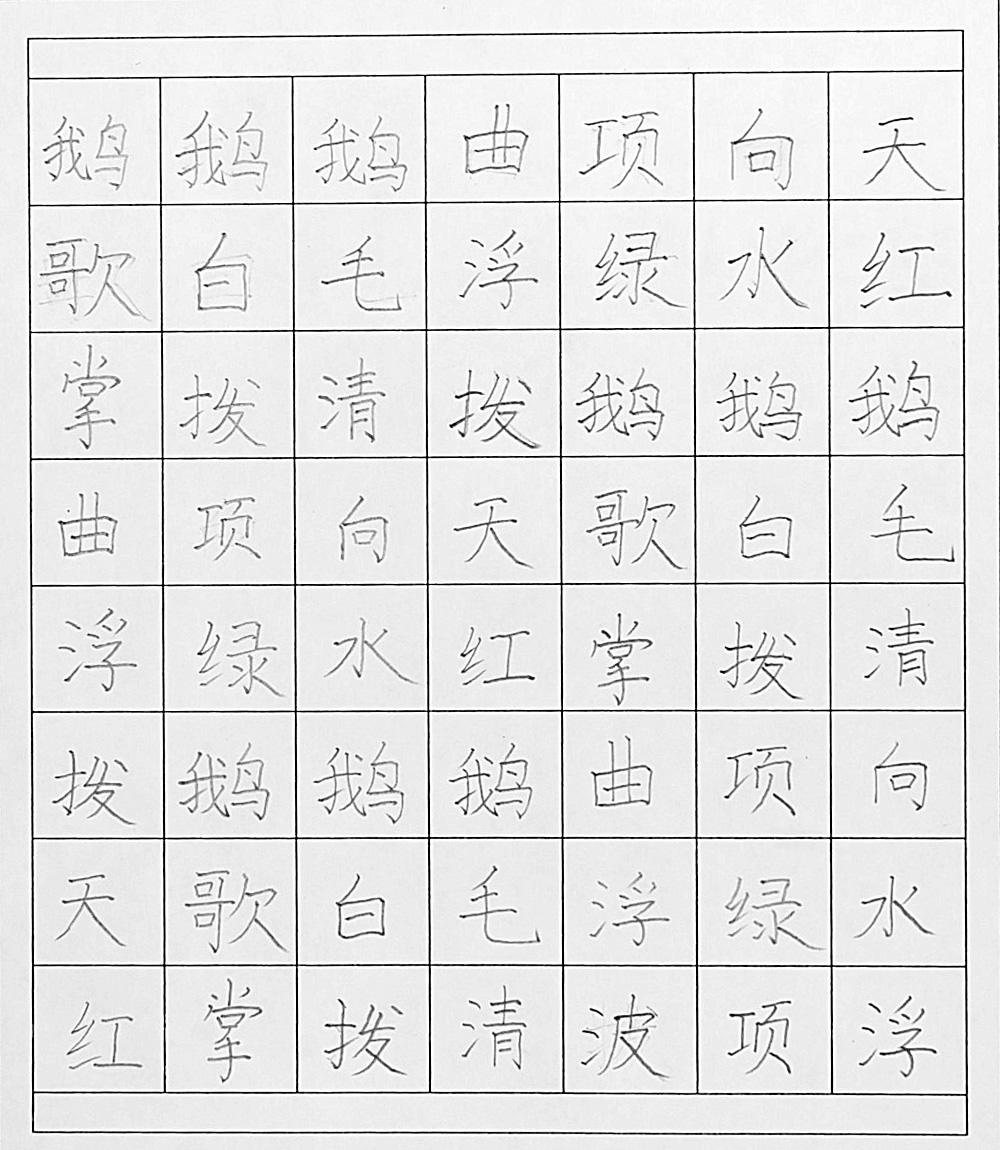 鹅鹅鹅曲项向天
歌白毛浮绿水红
掌拨清拨鹅鹅鹅
曲项向天歌白毛
浮绿水红掌拨清
拨鹅鹅鹅曲项向
天歌白毛浮绿水
红掌拨清波项浮